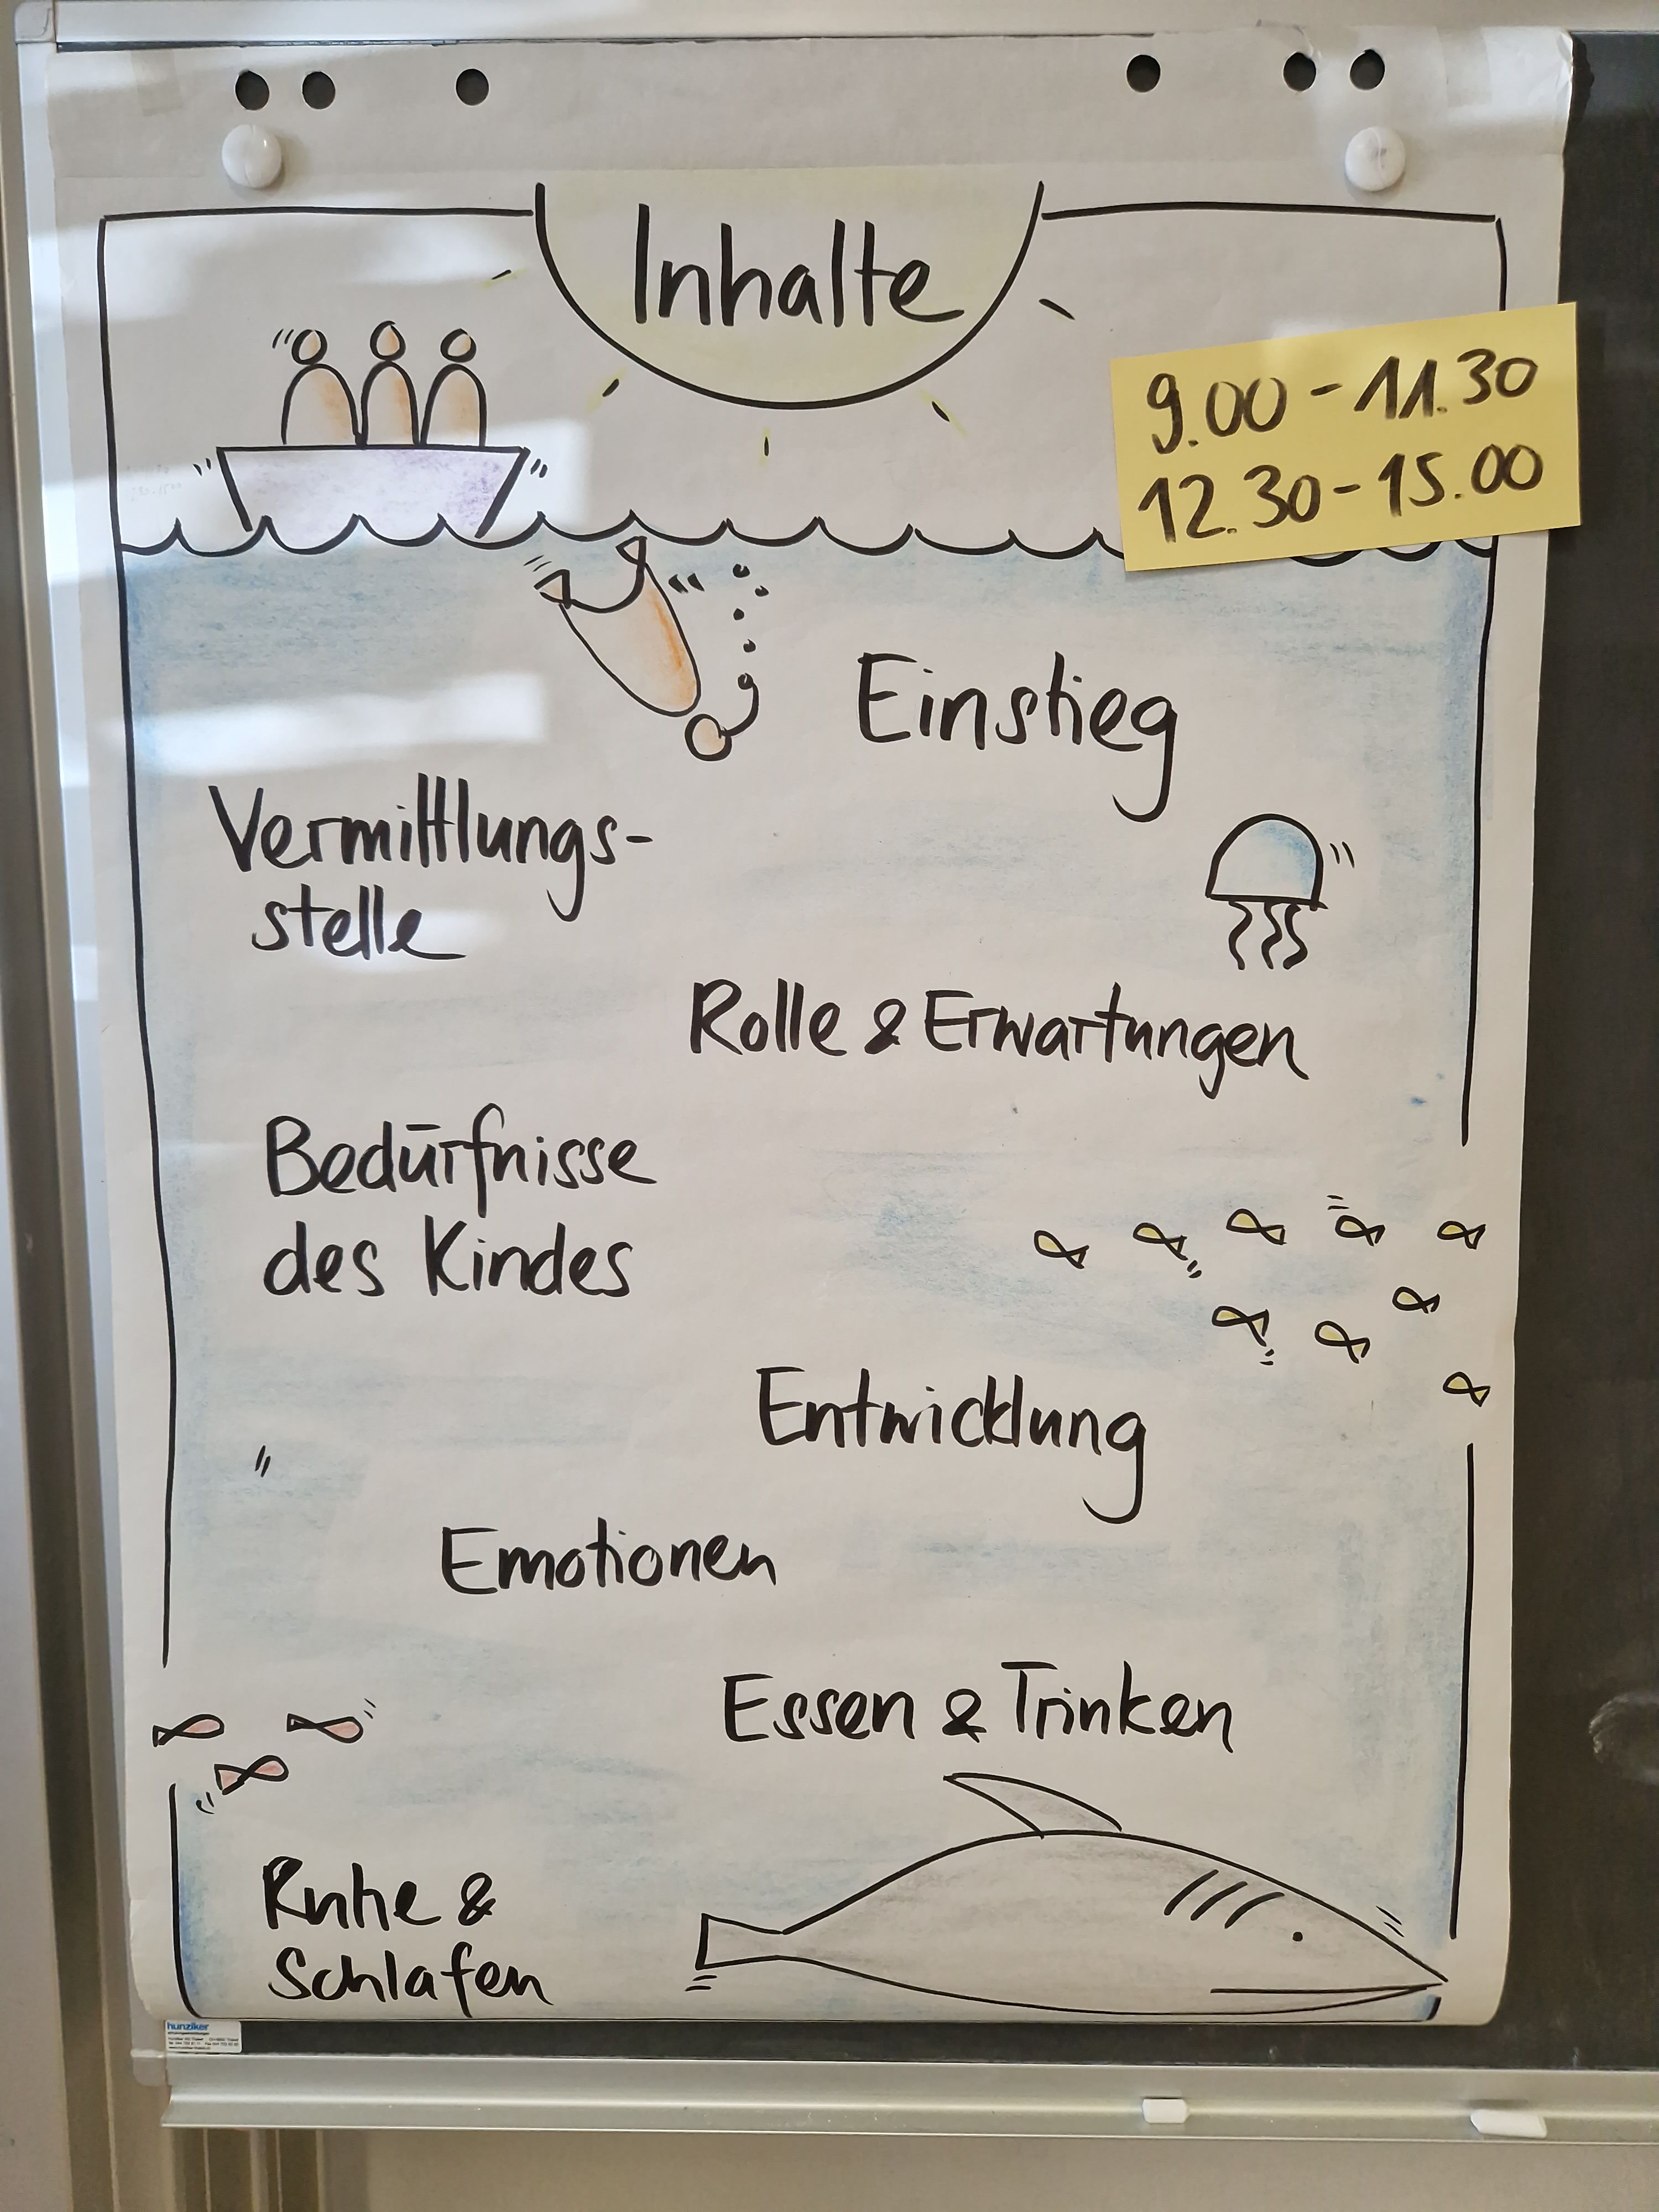 Inhalte
9.00 - 11.30
12.30 - 15.00
Einstieg
Vermittlungs-
stelle
Rolle & Erwartungen
Bedürfnisse
des Kindes
Entwicklung
Emotionen
Essen & Trinken
Ruhe &
Schlafen
hunziker